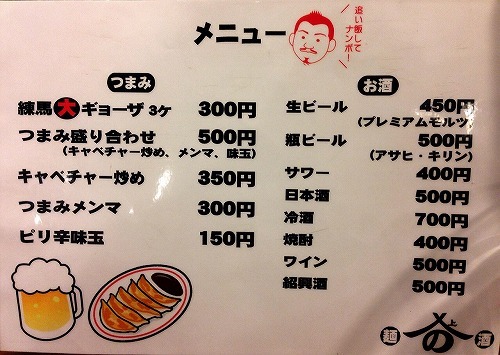 メニュー
追い飯して
ナンボー
つまみ
練馬大ギョーザ 3ケ 300円
つまみ盛り合わせ 500円
(キャベチャー炒め、メンマ、味玉)
キャベチャー炒め 350円
つまみメンマ 300円
ピリ辛味玉 150円
お酒
生ビール 450円
(プレミアムモルツ)
瓶ビール 500円
(アサヒ・キリン)
サワー 400円
日本酒 500円
冷酒 700円
焼酎 400円
ワイン 500円
紹興酒 500円
麺 の 上 酒